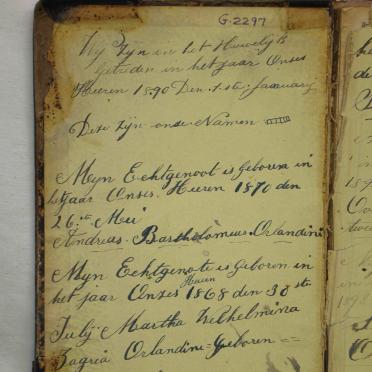 G.2297
Wij Zijn in het Huwelijk
Getreden in het Jaar Onses
Heeren 1890 Den 1.ste Januarij
Deze zijn onze Namen
Mijn Echtgenoot is Geboren in
het jaar Onses. Heeren 1870 den
26.ste Mei
Andreas. Bartholomeus. Orlandini
Mijn Echtgenote is Geboren in
het jaar Onses Heeren 1868 den 30 ste
Julij Martha Wilhelmina
Orlandini = Geboren =